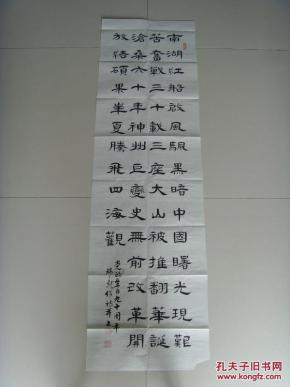 南湖红船启風颿黑暗中國曙光現艱
苦奮戰三十載三座大山被推翻華誕
滄桑六十年神州巨變史無前改革開
放结碩果华夏騰飛四海觀